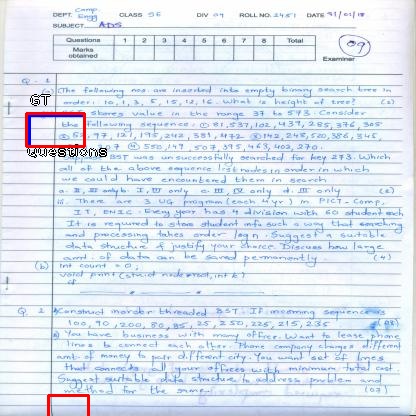 DEPT. Comp. Engg CLASS SE DIV 09 ROLL NO. 2451 DATE 31/01/18
SUBJECT ADS
Questions 1 2 3 4 5 6 7 8 Total
Marks obtained
Examiner
09
Q. 1
(a) The following nos. are inserted into empty binary search tree in
order: 10, 1, 3, 5, 15, 12, 16. What is height of tree? (2)
GT
stores value in the range 37 to 573. Consider
the following sequence. ① 81, 537, 102, 439, 285, 376, 305
② 52, 97, 121, 195, 242, 381, 472 ③ 142, 248, 520, 386, 345
④ 550, 149, 507, 395, 463, 402, 270.
Questions
BST was unsuccessfully searched for key 273. Which
all of the above sequence list nodes in order in which
we could have encountered them in search
a. II, III only b. I, III only c. III, IV only d. III only (2)
iii. There are 3 UG program (each 4 yr) in PICT - Comp,
IT, EnTC. Every year has 4 division with 60 student each
It is required to store student info such a way that searching
and processing takes order log n. Suggest a suitable
data structure & justify your choice. Discuss how large
amt. of data can be saved permanently (4)
(b) int count = 0;
void print (struct node *root, int k)
if
Q. 2 Construct inorder threaded BST. If incoming sequence is
100, 90, 200, 80, 85, 25, 250, 225, 215, 235
You have business with many office. Want to lease phone
lines to connect each other. Phone company charges different
amt of money to pair different city. You want set of lines
that connects all your offices with minimum total cost
Suggest suitable data structure to address problem and
method for the same. (03)